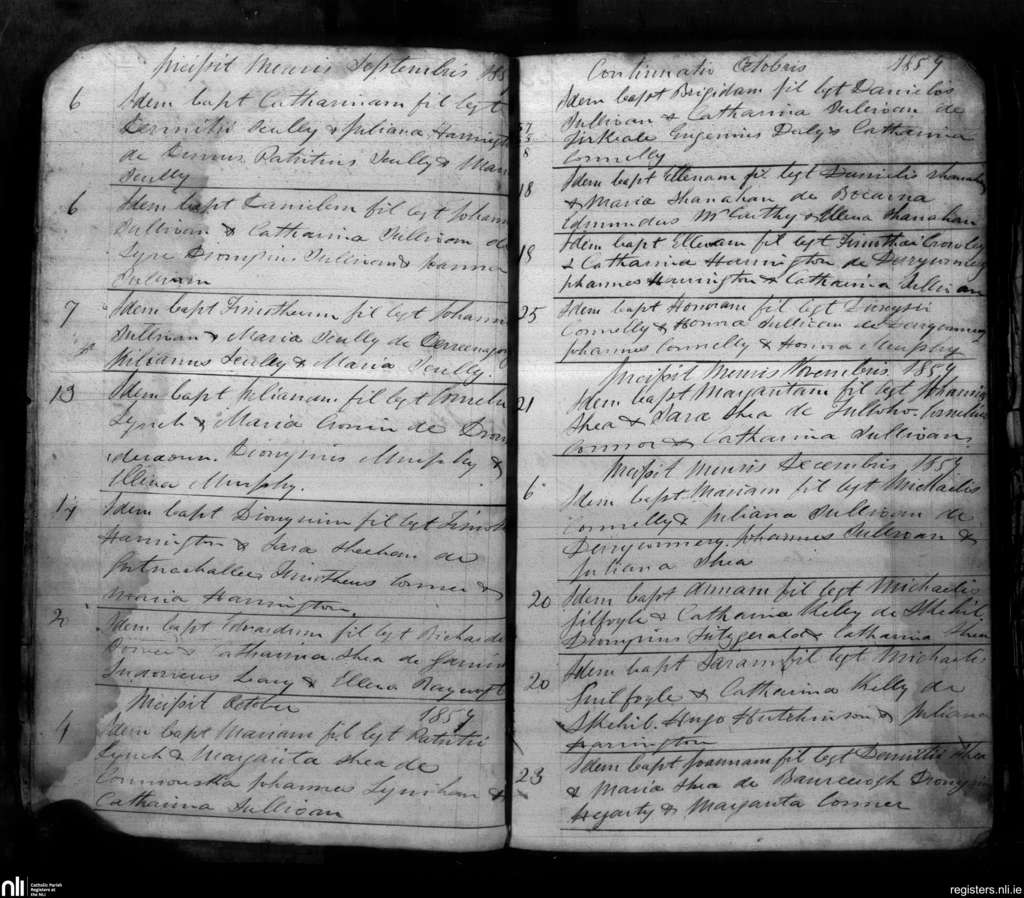 Incipit Mensis Septembris 185
6 Idem bapt Catharinam fil legt
Dermitii Scully & Juliana Harringt
de Patritius Scully & Mari
Scully
6 Idem bapt Danielem fil legt Johann
Sullivan & Catharina Sullivan de
Dionysius Sullivan & Hanna
Sullivan
7 Idem bapt Timotheum fil legt Johann
Sullivan & Maria Scully de
Wiliamus Scully & Maria Scully.
13 Idem bapt Julianam fil legt Corneliu
Lynch & Maria Cronin de Drom
Dionysius Murphy &
Ellena Murphy.
14 Idem bapt Dionysium fil legt Timoth
Harrington & Sara Sheehan de
Timotheus Connor &
Maria Harrington.
2 Idem bapt Edvardum fil legt Richardi
& Catharina Shea de
Leary & Ellena
Incipit October 1857
4 Idem bapt Mariam fil legt Patritii
Lynch & Margarita Shea de
Johannes Lynihan &
Catharina Sullivan
Continuatio Octobris 1857
Idem bapt Brigidam fil legt Danielis
Sullivan & Catharina Sullivan de
Eugenius Daly & Catharina
8 Connelly
18 Idem bapt Ellenam fil legt Danielis Shanahan
& Maria Shanahan de
Edmundus McCarthy & Ellena Shanahan
18 Idem bapt Ellenam fil legt Timothei Crowley
& Catharina Harrington de
Johannes Harrington & Catharina Sullivan
25 Idem bapt Honoram fil legt Dionysii
Connelly & Honora Sullivan de
Johannes Connelly & Honora Murphy
Incipit Mensis Novembris 1857
21 Idem bapt Margaritam fil legt Johannis
Shea & Sara Shea de Cornelius
Connor & Catharina Sullivan.
Incipit Mensis Decembris 1857
6 Idem bapt Mariam fil legt Michaelis
Connelly & Juliana Sullivan de
Johannes Sullivan &
Juliana Shea
20 Idem bapt Annam fil legt Michaelis
Gilfoyle & Catharina Kelly de Skehil
Dionysius Fitzgerald & Catharina Shea
20 Idem bapt Saram fil legt Michaelis
Guilfoyle & Catharina Kelly de
Skehil. Hugo Hutchinson & Juliana
Harrington
23 Idem bapt Joannam fil legt Shea
& Maria Shea de Dionysius
Hegarty & Margarita Connor
nli Catholic Parish
Registers at
the NLI
registers.nli.ie